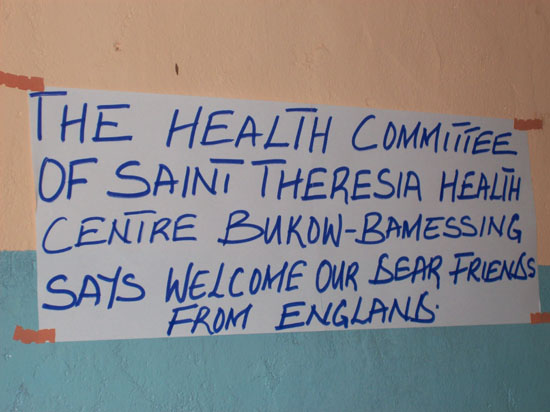 THE HEALTH COMMITTEE
OF SAINT THERESIA HEALTH
CENTRE BUKOW-BAMESSING
SAYS WELCOME OUR DEAR FRIENDS
FROM ENGLAND.